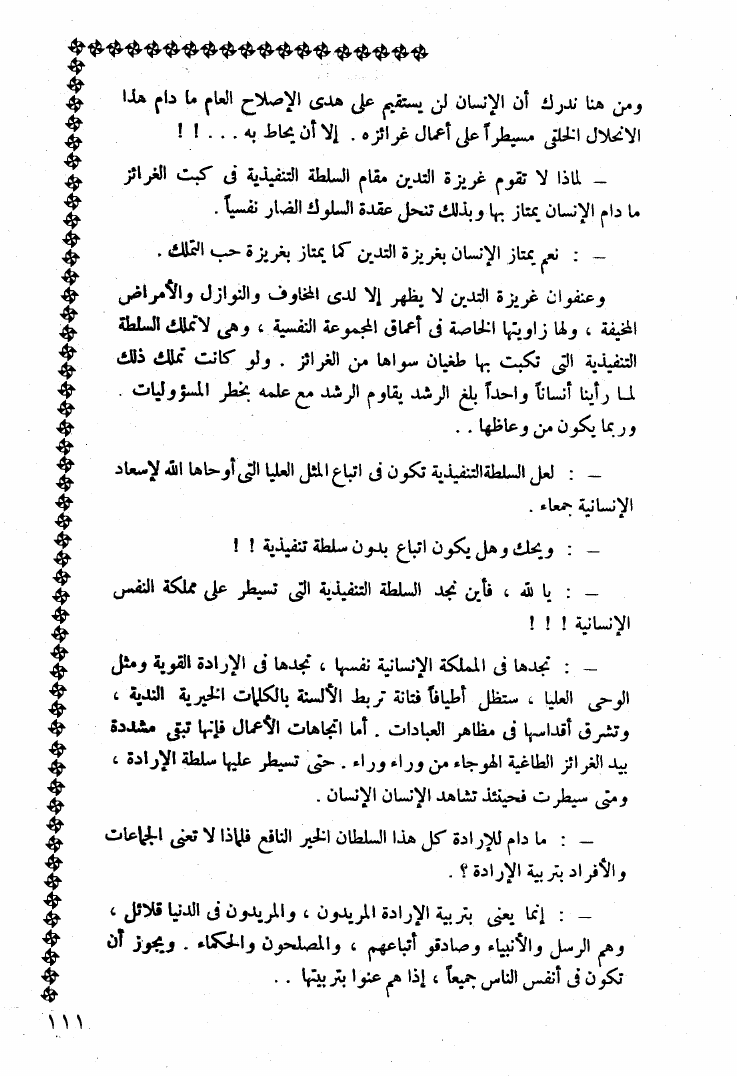 ومن هنا ندرك أن الإنسان لن يستقيم على هدى الإصلاح العام ما دام هذا
الانحلال الخلقى مسيطراً على أعمال غرائزه . إلا أن يحاط به . . . ! !
– لماذا لا تقوم غريزة التدين مقام السلطة التنفيذية فى كبت الغرائز
ما دام الإنسان يمتاز بها وبذلك تنحل عقدة السلوك الضار نفسياً .
– : نعم يمتاز الإنسان بغريزة التدين كما يمتاز بغريزة حب التملك .
وعنفوان غريزة التدين لا يظهر إلا لدى المخاوف والنوازل والأمراض
المخيفة ، ولها زاويتها الخاصة فى أعماق المجموعة النفسية ، وهى لا تملك السلطة
التنفيذية التى تكبت بها طغيان سواها من الغرائز . ولو كانت تملك ذلك
لما رأينا أنساناً واحداً بلغ الرشد يقاوم الرشد مع علمه بخطر المسؤوليات .
وربما يكون من وعاظها . .
– : لعل السلطة التنفيذية تكون فى اتباع المثل العليا التى أوحاها الله لإسعاد
الإنسانية جمعاء .
– : ويحك وهل يكون اتباع بدون سلطة تنفيذية ! !
– : يا لله ، فأين نجد السلطة التنفيذية التى تسيطر على مملكة النفس
الإنسانية ! ! !
– : تجدها فى المملكة الإنسانية نفسها ، تجدها فى الإرادة القوية ومثل
الوحى العليا ، ستظل أطيافاً فتانة تربط الألسنة بالكلمات الخيرية الندية ،
وتشرق أقداسها فى مظاهر العبادات . أما اتجاهات الأعمال فإنها تبقى مشددة
بيد الغرائز الطاغية الهوجاء من وراء وراء . حتى تسيطر عليها سلطة الإرادة ،
ومتى سيطرت فحينئذ تشاهد الإنسان الإنسان .
– : ما دام للإرادة كل هذا السلطان الخير النافع فلماذا لا تعنى الجماعات
والأفراد بتربية الإرادة ؟ .
– : إنما يعنى بتربية الإرادة المريدون ، والمريدون فى الدنيا قلائل ،
وهم الرسل والأنبياء وصادقو أتباعهم ، والمصلحون والحكماء . ويجوز أن
تكون فى أنفس الناس جميعاً ، إذا هم عنوا بتربيتها . .
١١١